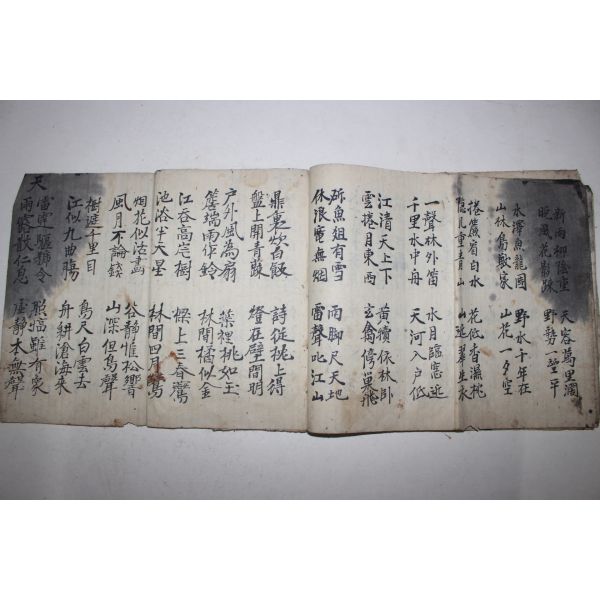 新雨柳陰重 天容萬里闊
晚風花影踈 野勢一望平
水澤魚龍國 野水十年在
山林鳥獸家 山花一夕空
捲簾看白水 花低香濕桃
隱几重青山 山遙翠生衣
一聲林外笛 水月臨窓近
千里水中舟 天河入戶低
江清天上下 黃犢依林卧
雲捲月東西 玄禽傍果飛
斫魚俎有雪 雨脚尺天地
休浪電無烟 雷聲叱江山
鼎裏炊白飯 詩從枕上得
盤上開青殽 燈在壁間明
戶外風為扇 葉裡桃如玉
簷端雨作鈴 林間橘似金
江呑高岸樹 樑上三春鷰
池涂半天星 林間四月鶯
烟花似活畫 谷靜惟松響
風月不論錢 山深但鳥聲
樹遮千里目 鳥尺白雲去
江似九曲腸 舟耕滄海來
天 雷運驅號令 照臨雖有家
雨露散仁恩 虛靜本無聲